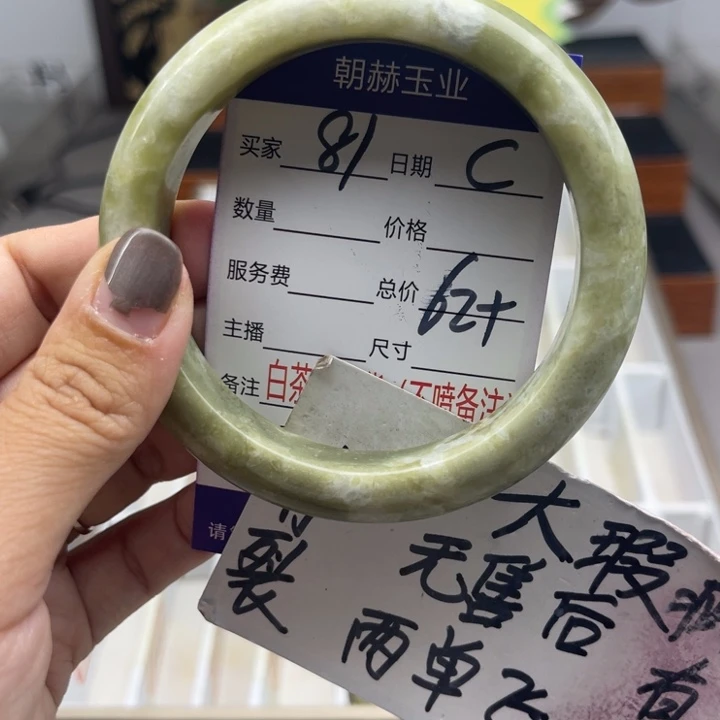 朝赫玉业
买家 81 日期 C
数量 价格
服务费 总价 62+
主播 尺寸
备注 白茶 (不喷备注)
请
大瑕疵
裂 无售后 有
两单